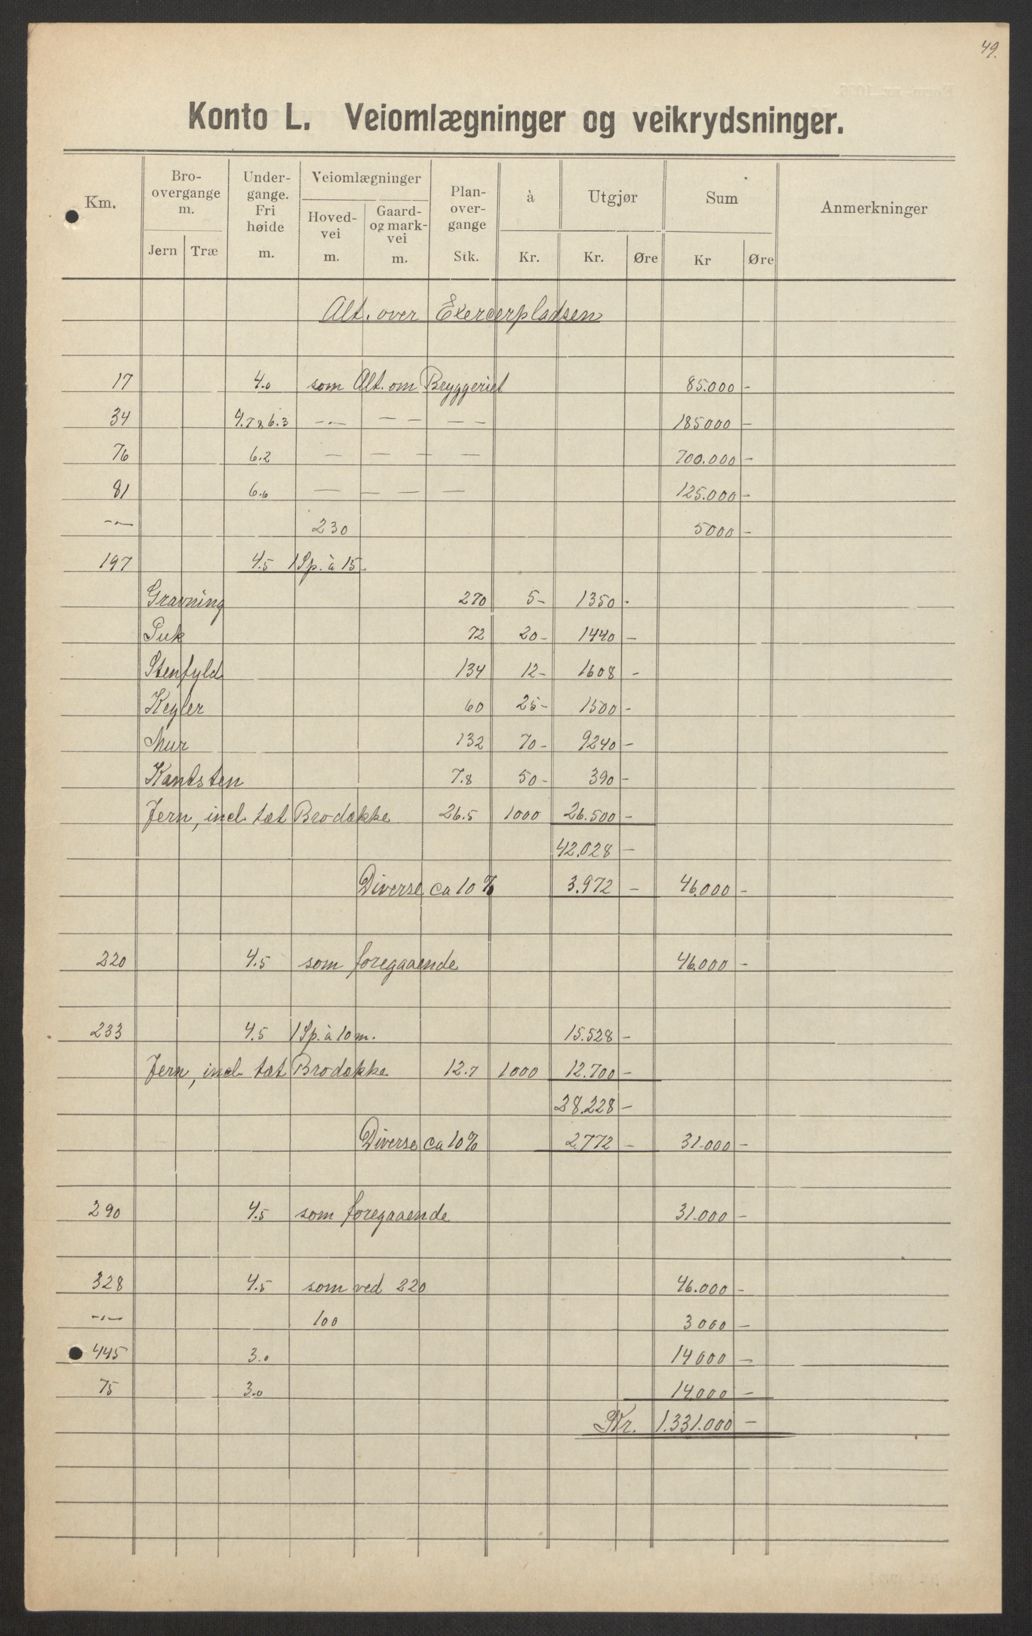 49.
Konto L. Veiomlægninger og veikrydsninger.
Km. Bro-overgange m. Jern Træ Under-gange. Fri høide m. Veiomlægninger Hoved-vei m. Gaard- og mark-vei m. Plan-over-gange Stk. à Kr. Utgjør Kr. Øre Sum Kr Øre Anmerkninger
Alt. over Exercerpladsen
17 4.0 som Alt. om Bryggeriet 85.000 -
34 4.7 & 6.3 — — — 185000 -
76 6.2 — — — — 700.000 -
81 6.6 — — — — 125.000 -
-"- 230 5000 -
197 4.5 1 Sp. à 15
Gravning 270 5- 1350 -
Puk 72 20- 1440 -
Stenfyld 134 12- 1608 -
Kegler 60 25- 1500 -
Mur 132 70- 9240 -
Kantsten 7.8 50- 390 -
Jern, incl. tæt Brodække 26.5 1000 26.500 -
42.028 -
Diverse ca 10% 3.972 - 46.000 -
220 4.5 som foregaaende 46.000 -
233 4.5 1 Sp. à 10 m. 15.528 -
Jern, incl. tæt Brodække 12.7 1000 12.700 -
28.228 -
Diverse ca 10% 2772 - 31.000 -
290 4.5 som foregaaende 31.000 -
328 4.5 som ved 220 46.000 -
-"- 100 3000 -
445 3.0 14000 -
75 3.0 14.000 -
Kr. 1.331.000 -